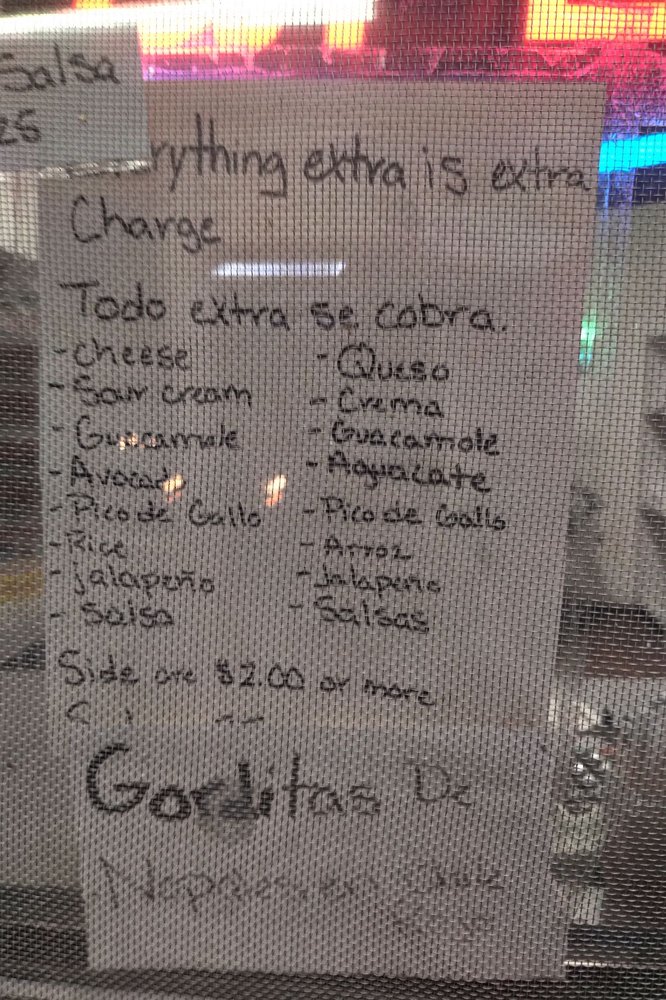 Salsa
25
rything extra is extra
Charge
Todo extra se cobra.
- cheese - Queso
- Sour cream - Crema
- Guacamole - Guacamole
- Avocado - Aguacate
- Pico de Gallo - Pico de Gallo
- Rice - Arroz
- jalapeño - Jalapeño
- Salsa - Salsas
Side are $2.00 or more
Gorditas De